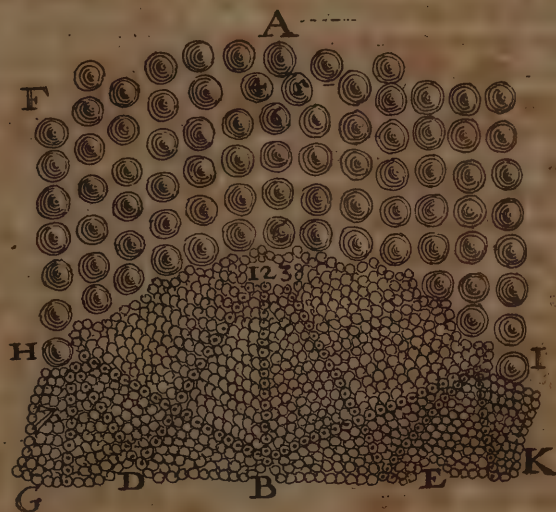 A
F
4 5
123
H I
D B E K
G